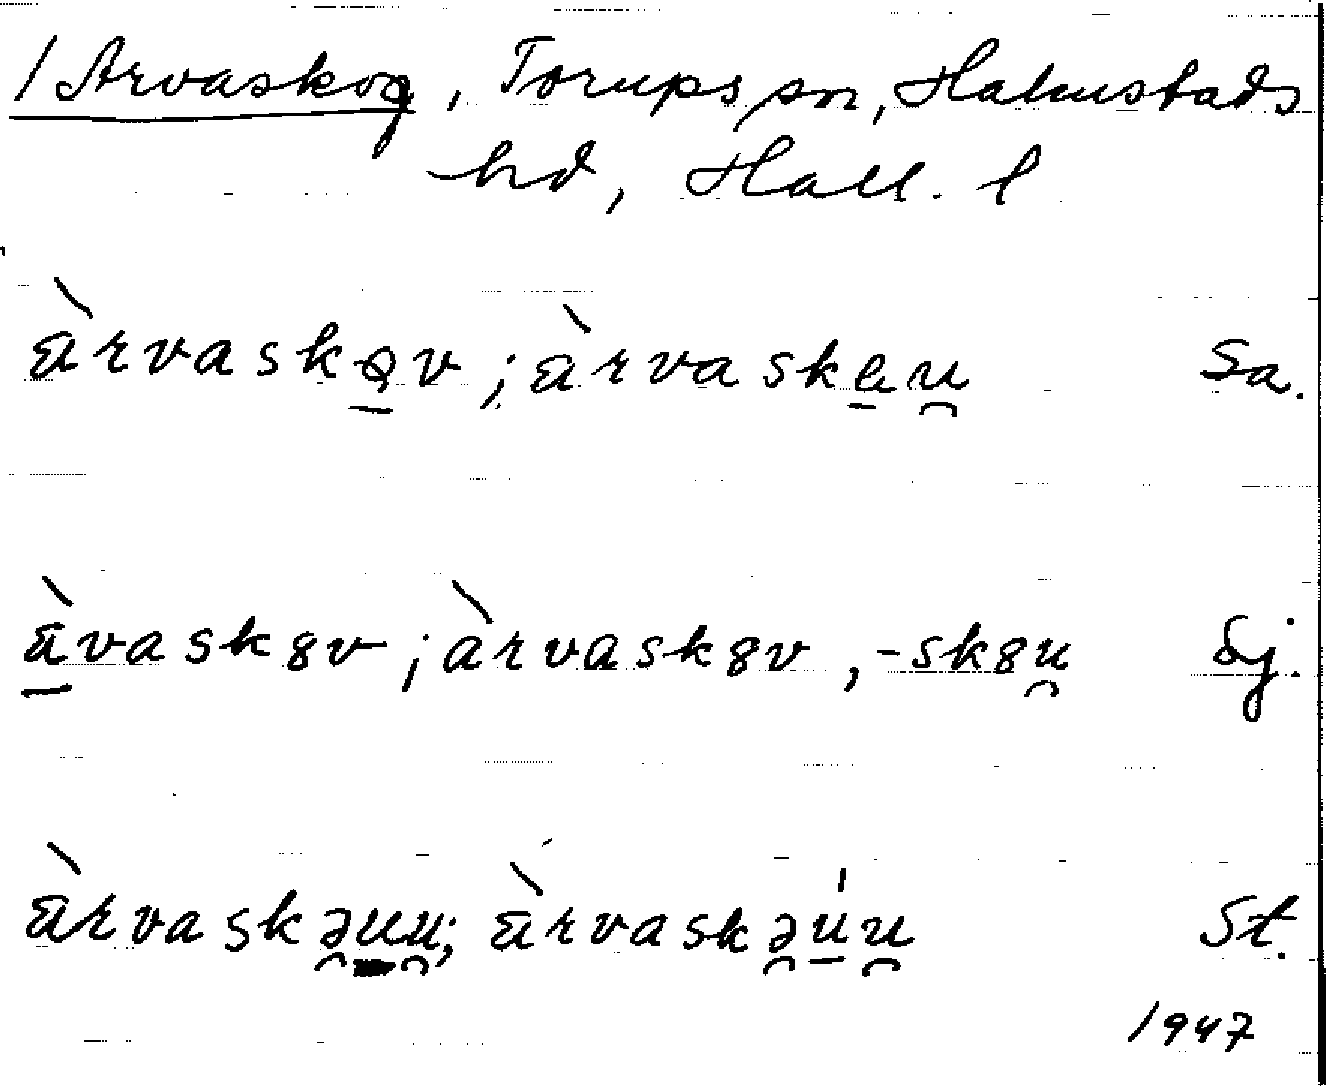 / Arvaskog, Torups sn, Halmstads
hd, Hall. l
àrvaskǫv; àrvaskau̯ Sa.
àvaskȣv; àrvaskȣv, -skȣu̯ Sj.
àrvaskə̯uu̯; àrvaskə̯úu̯ St.
1947